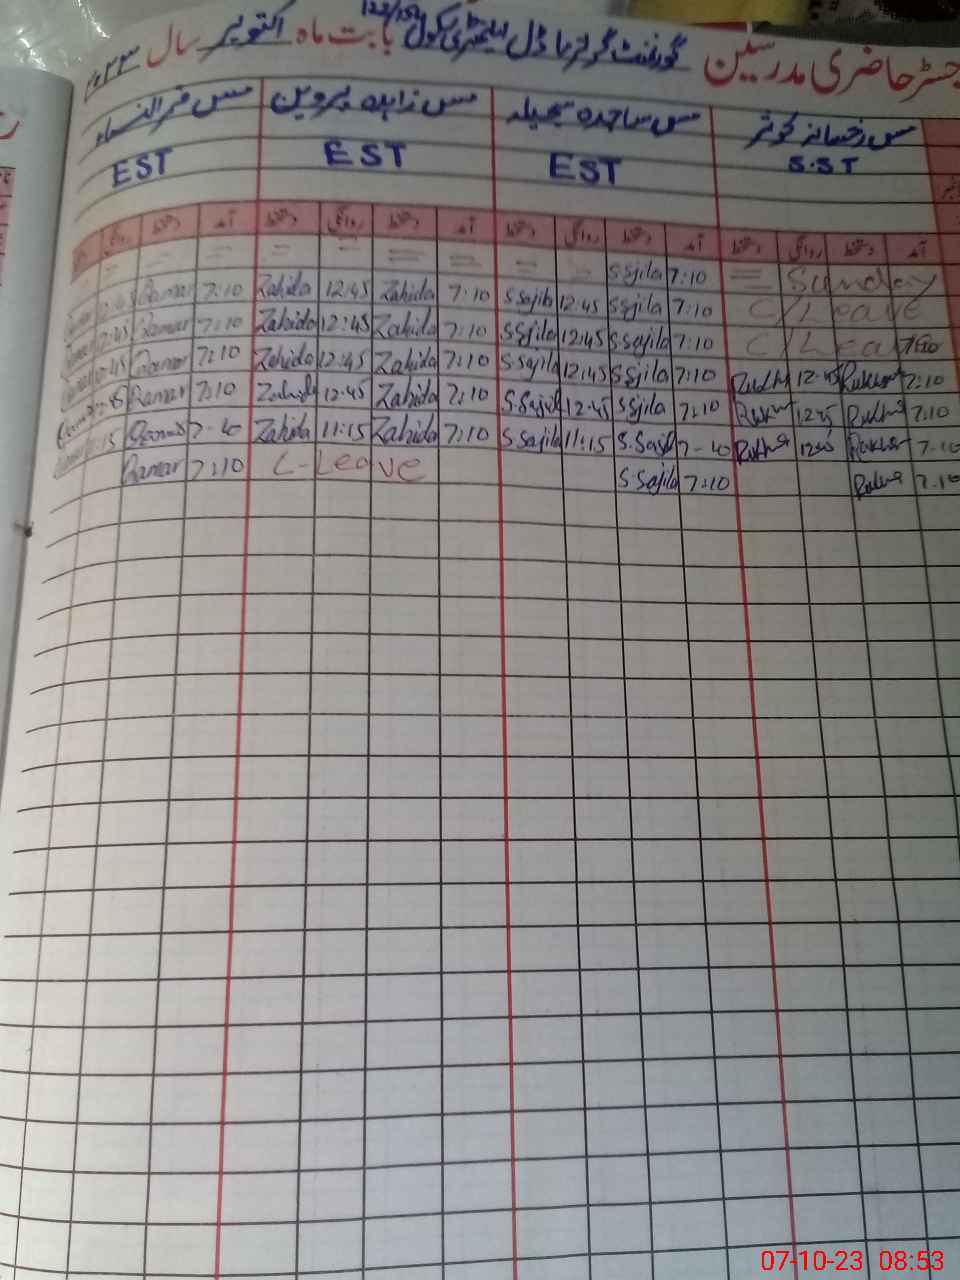 رجسٹر حاضری مدرسین گورنمنٹ گرلز ماڈل ایلیمنٹری سکول 122/15L بابت ماہ اکتوبر سال ۲۰۲۳
مس رخسانہ کوثر مس ساجدہ سجیلہ مس زاہدہ پروین مس قمر النساء
S.ST EST EST EST
آمد دستخط روانگی دستخط آمد دستخط روانگی دستخط آمد دستخط روانگی دستخط آمد دستخط روانگی
= Sunday 7:10 S Sjila = = = = = = = = =
C/Leave 7:10 S Sjila 12:45 7:10 Zahida 12:45 Zahida 7:10 Qamar 12:45
C/Leave 7:10 S Sjila 12:45 S Sjila 7:10 Zahida 12:45 Zahida 7:10 Qamar 12:45
7:10 12:45 7:10 S Sjila 12:45 S Sjila 7:10 Zahida 12:45 Zahida 7:10 Qamar 12:45
7:10 12:45 7:10 S Sjila 12:45 7:10 Zahida 12:45 Zahida 7:10 Qamar 12:45
7:10 7-40 11:15 S Sajila 7:10 Zahida 11:15 Zahida 7-40 11:15
7:10 7:10 S Sajila C-Leave 7:10 Qamar
07-10-23 08:53